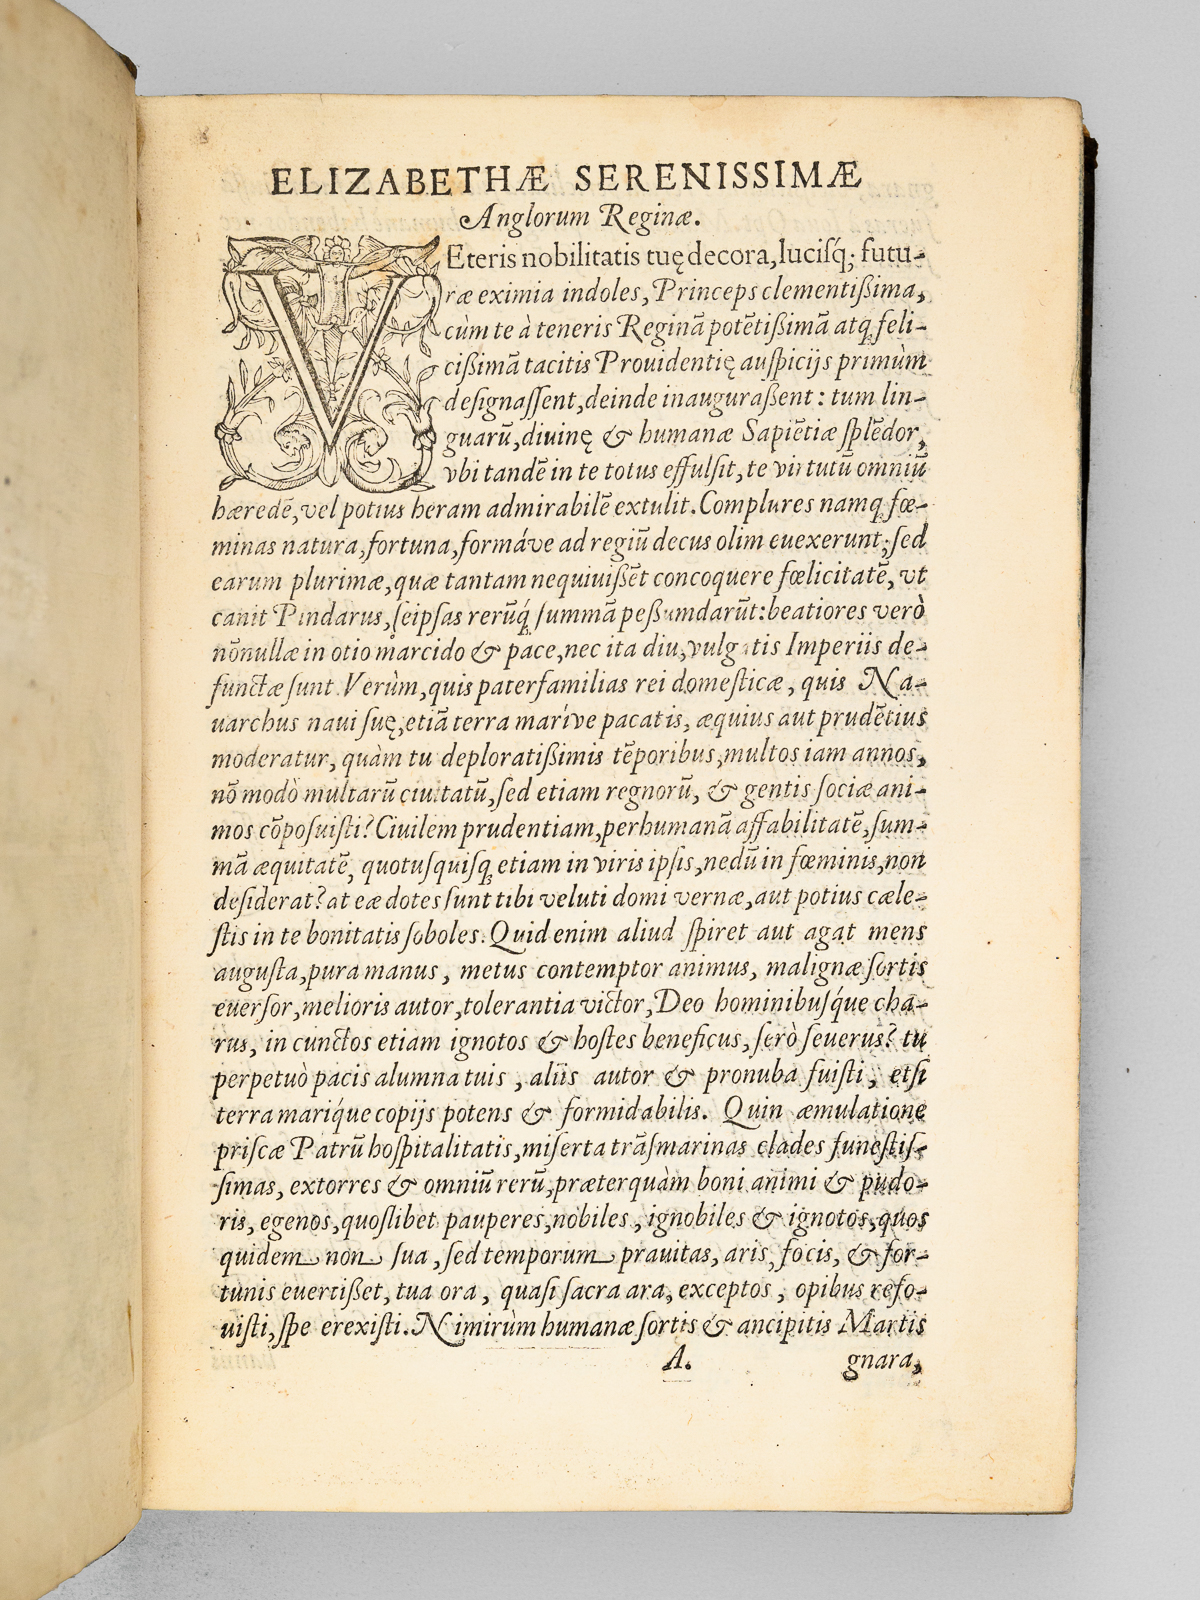 ELIZABETHÆ SERENISSIMÆ
Anglorum Reginæ.
VEteris nobilitatis tuę decora, luciſq́; futu-
ræ eximia indoles, Princeps clementißima,
cùm te à teneris Reginā potētißimā atq; feli-
cißimā tacitis Prouidentię auſpicijs primùm
deſignaſſent, deinde inauguraßent: tum lin-
guarū, diuinę & humanæ Sapiētiæ ſplēdor,
vbi tandē in te totus effulſit, te virtutū omniū
hæredē, vel potius heram admirabilē extulit. Complures namq; fœ-
minas natura, fortuna, formáve ad regiū decus olim euexerunt; ſed
earum plurimæ, quæ tantam nequiuißēt concoquere fœlicitatē, vt
canit Pindarus, ſeipſas rerūq́; ſummā peßumdarūt: beatiores verò
nōnullæ in otio marcido & pace, nec ita diu, vulgatis Imperiis de-
functæ ſunt. Verùm, quis paterfamilias rei domeſticæ, quis Na-
uarchus naui ſuę, etiā terra maríve pacatis, æquius aut prudētius
moderatur, quàm tu deploratißimis tēporibus, multos iam annos,
nō modò multarū ciuitatū, ſed etiam regnorū, & gentis ſociæ ani-
mos cōpoſuiſti? Ciuilem prudentiam, perhumanā affabilitatē, ſum-
mā æquitatē, quotuſquiſq; etiam in viris ipſis, nedū in fœminis, non
deſiderat? at eæ dotes ſunt tibi veluti domi vernæ, aut potius cæle-
ſtis in te bonitatis ſoboles. Quid enim aliud ſpiret aut agat mens
auguſta, pura manus, metus contemptor animus, malignæ ſortis
euerſor, melioris autor, tolerantia victor, Deo hominibuſq́ue cha-
rus, in cunctos etiam ignotos & hoſtes beneficus, ſerò ſeuerus? tu
perpetuò pacis alumna tuis, aliis autor & pronuba fuiſti, etſi
terra mariq́ue copijs potens & formidabilis. Quin æmulatione
priſcæ Patrū hoſpitalitatis, miſerta trāſmarinas clades funeſtiſ-
ſimas, extorres & omniū rerū, præterquàm boni animi & pudo-
ris, egenos, quoſlibet pauperes, nobiles, ignobiles & ignotos, quos
quidem non ſua, ſed temporum prauitas, aris, focis, & for-
tunis euertißet, tua ora, quaſi ſacra ara, exceptos, opibus refo-
uiſti, ſpe erexiſti. Nimirùm humanæ ſortis & ancipitis Martis
A. gnara,